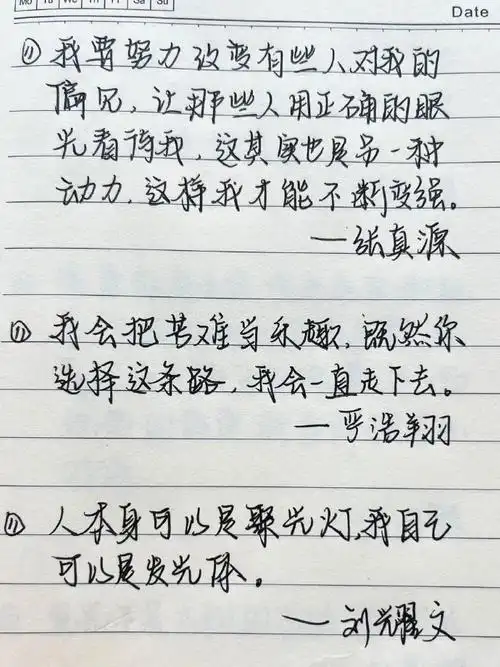 Mo Tu We Th Fr Sa Su
Date
⑪ 我要努力改变有些人对我的
偏见,让那些人用正确的眼
光看待我,这其实也是另一种
动力,这样我才能不断变强。
—张真源
⑪ 我会把苦难当乐趣,既然你
选择这条路,我会一直走下去。
—严浩翔
⑪ 人本身可以是聚光灯,我自己
可以是发光体。
—刘耀文